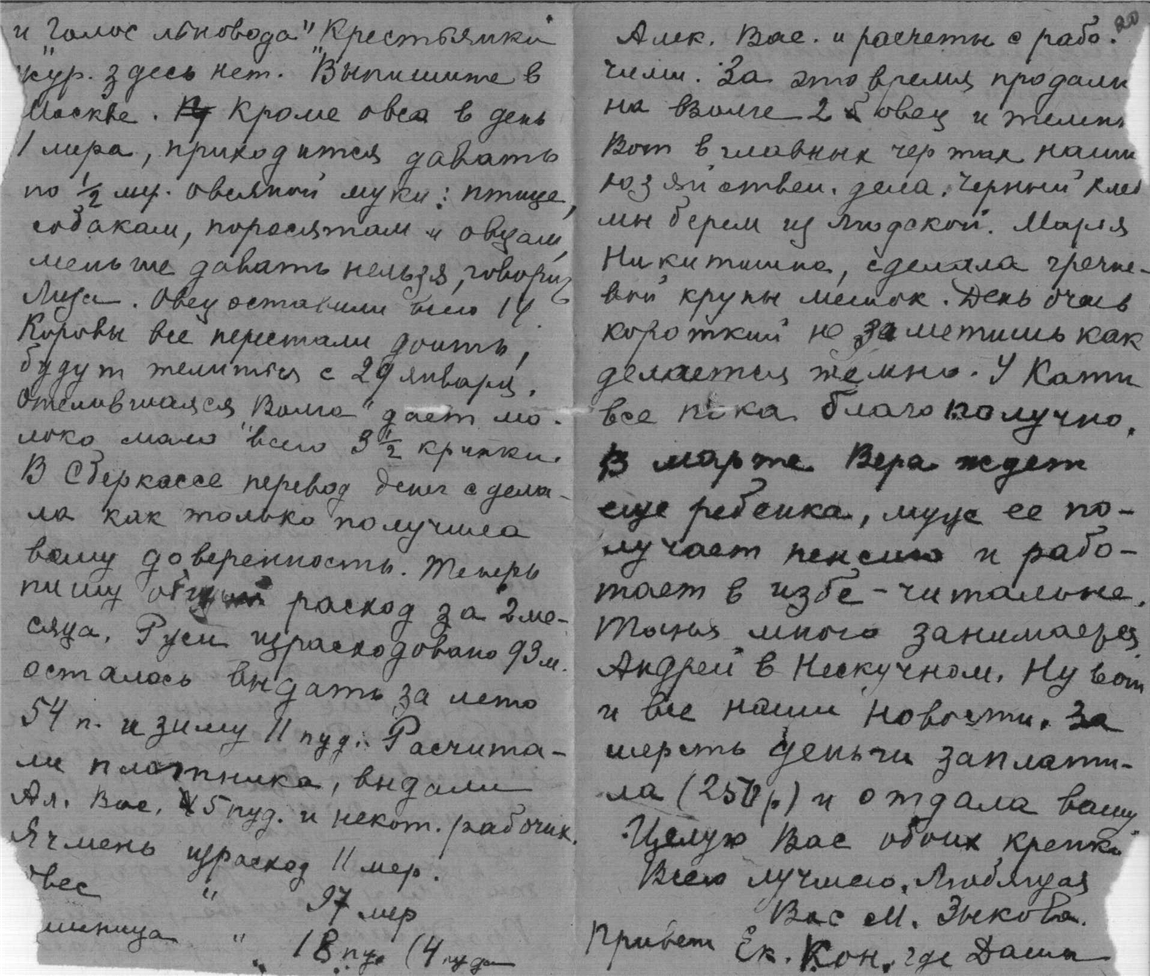 и Голос льновода" Крестьянки
жур. здесь нет. Выпишите в
Москве. Кроме овса в день
1 мира, приходится давать
по 1/2 му. овсяной муки: птице,
собакам, поросятам и овцам,
меньше давать нельзя, говорит
Луза. Овец оставили всего 14.
Коровы все перестали доить,
будут телиться с 29 января.
Отелившаяся "Волга" дает мо-
локо мало всего 3 1/2 кринки.
В Сберкассе перевод денег сдела-
ла как только получила
вашу доверенность. Теперь
пишу расход за 2 ме-
сяца. Руси израсходовано 93 м.
осталось выдать за лето
54 п. и зиму 11 пуд. Расчита-
ли плотника, выдали
Ал. Вас. 45 пуд. и некот. рабочих.
Ячмень израсход 11 мер.
Овес " 97 мер
шеница " 18 пу. (4 пуда
20
Алек. Вас. и расчеты с рабо-
чими. За это время продали
на Волге 2 овец и телень
Вот в главных чертах наши
хозяйствен. дела. Черный хлеб
мы берем из людской. Марля
Никитишна, сделала гречне-
вой крупы мешок. День очень
короткий не заметишь как
делается темно. У Кати
все пока благополучно.
В марте Вера ждет
еще ребенка, муж ее по-
лучает пенсию и рабо-
тает в избе-читальне.
Таня много занимается
Андрей в Нескучном. Ну вот
и все наши новости. За
шерсть деньги заплати-
ла (250 р.) и отдала вашу
Целую Вас обоих крепко
Всего лучшего. Любящая
Вас М. Зыкова.
Привет Ек. Кон. где Даша